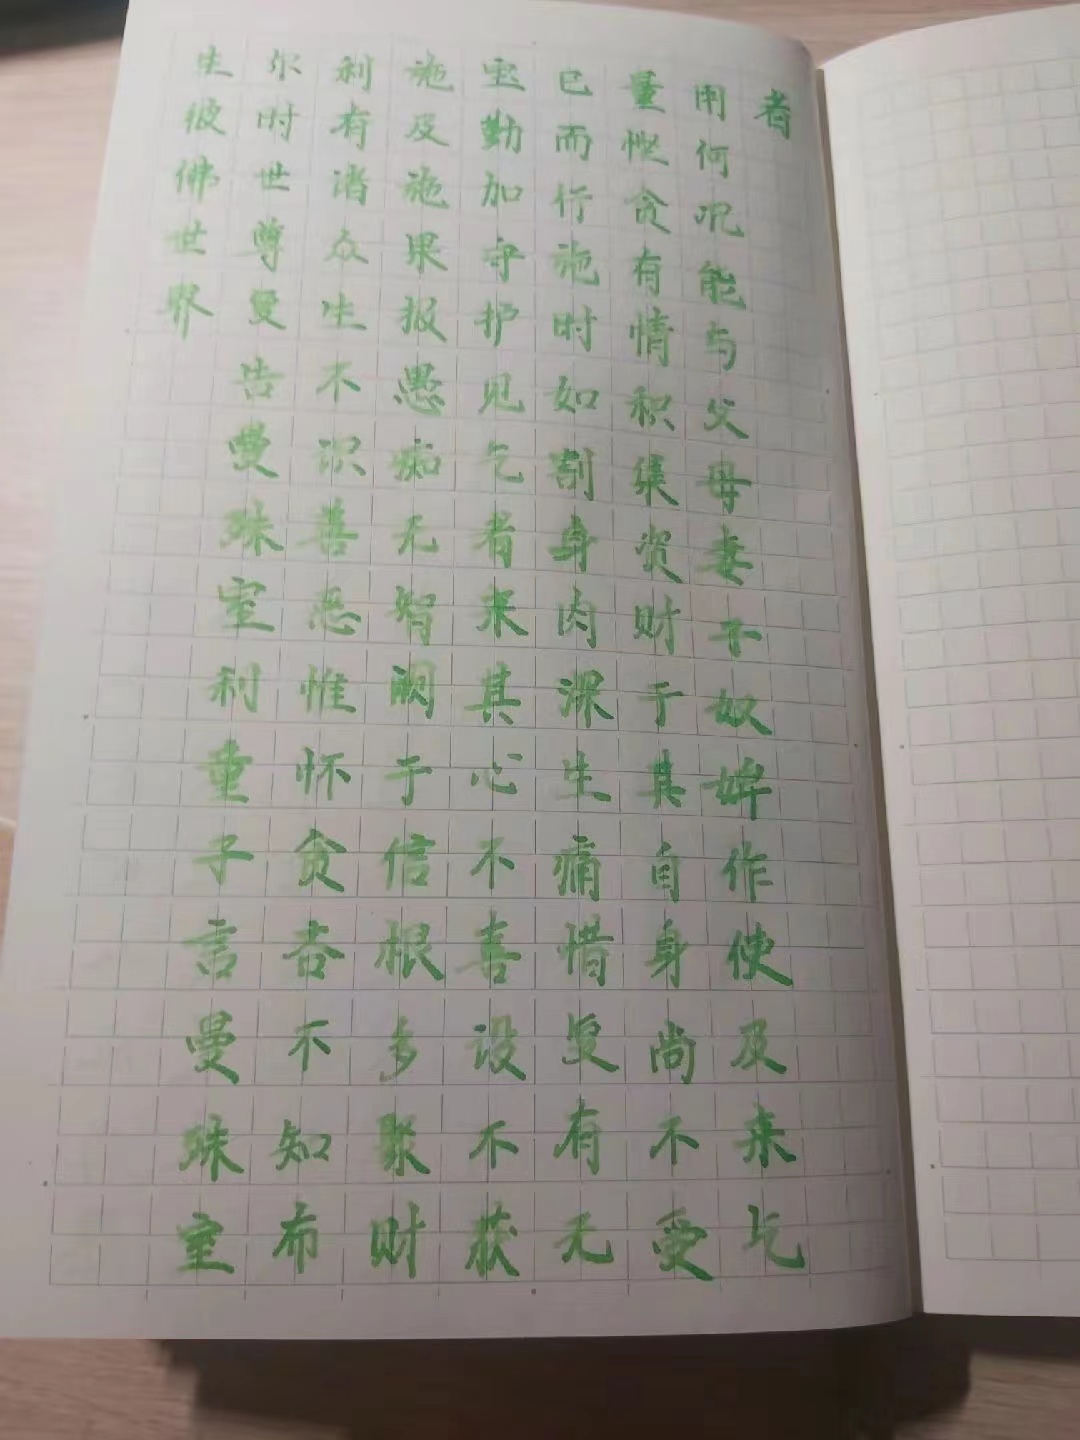 生彼佛世界
尔时世尊复告曼殊室利童子言曼殊室
利有诸众生不识善恶惟怀贪吝不知布
施及施果报愚痴无智阙于信根多聚财
宝勤加守护见乞者来其心不喜设不获
已而行施时如割身肉深生痛惜复有无
量悭贪有情积集资财于其自身尚不受
用何况能与父母妻子奴婢作使及来乞
者